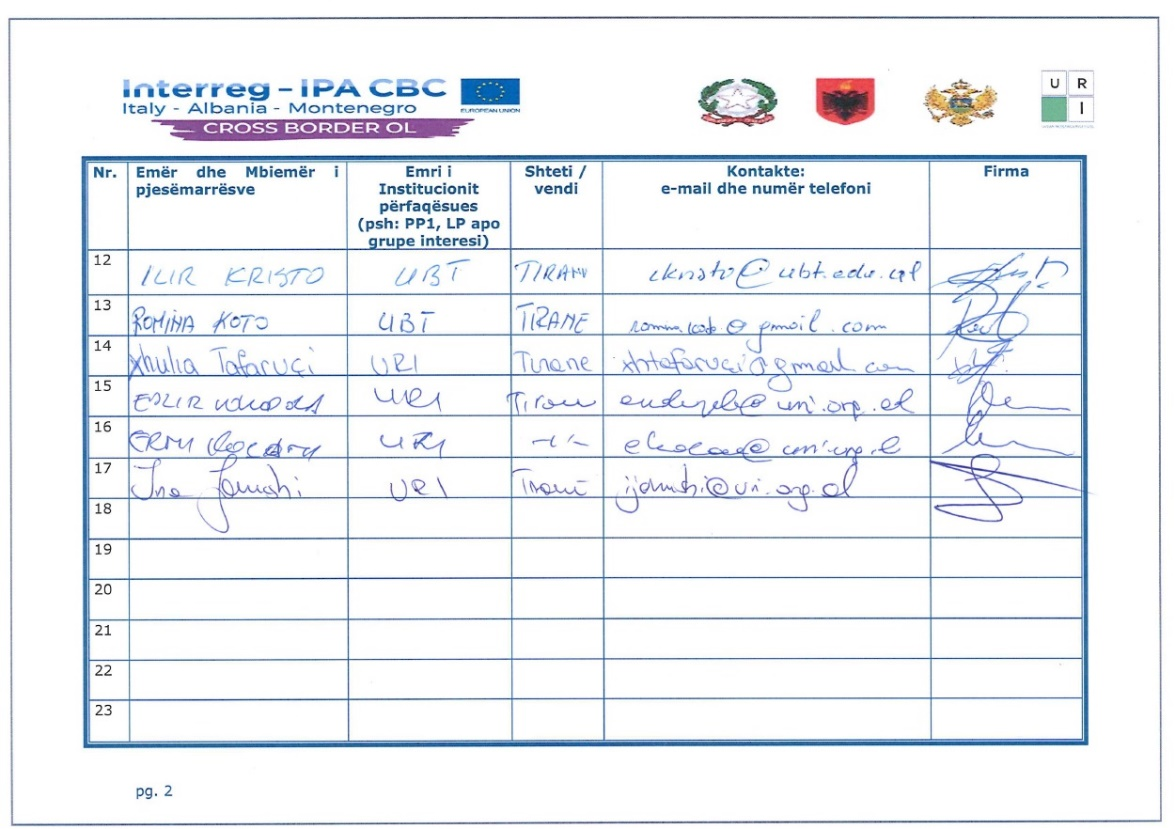 Interreg – IPA CBC
Italy - Albania - Montenegro
EUROPEAN UNION
CROSS BORDER OL
U R
I
Nr. Emër dhe Mbiemër i pjesëmarrësve Emri i Institucionit përfaqësues (psh: PP1, LP apo grupe interesi) Shteti / vendi Kontakte: e-mail dhe numër telefoni Firma
12 ILIR KRISTO UBT TIRANË ikristo@ubt.edu.al
13 ROMINA KOTO UBT TIRANE @gmail.com
14 Xhulia Tafaruçi URI Tirane xhtafaruci@gmail.com
15 URI Tirane
16 URI -//-
17 Ina URI Tiranë
18
19
20
21
22
23
pg. 2